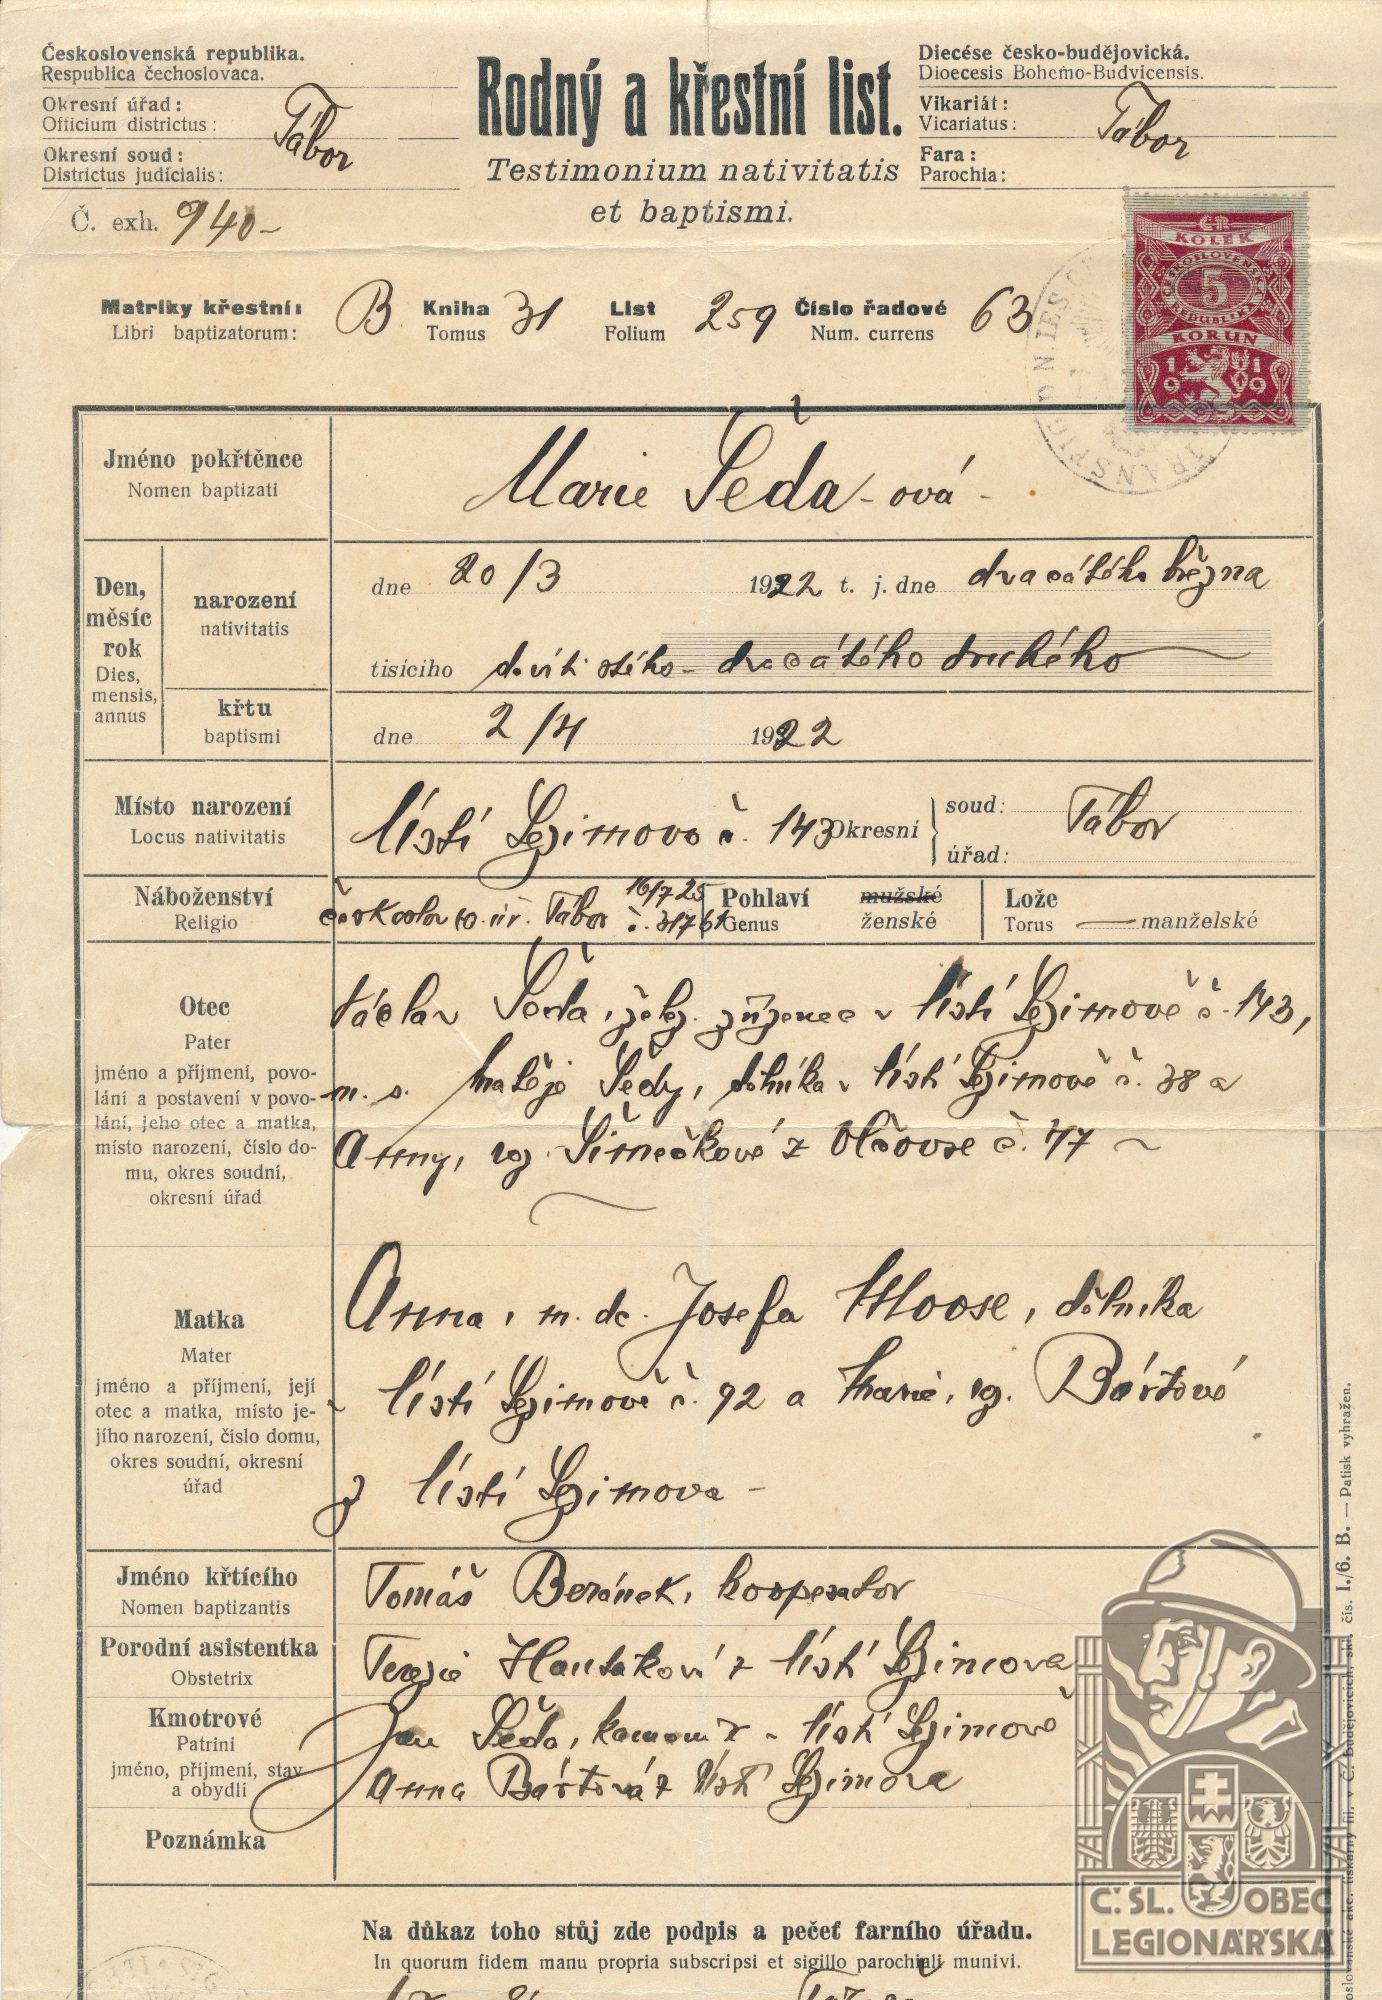 Československá republika.
Respublica čechoslovaca.
Okresní úřad:
Officium districtus:
Tábor
Okresní soud:
Districtus judícialis:
Č. exh. 940-
Rodný a křestní list.
Testimonium nativitatis
et baptismi.
Diecése česko-budějovická.
Dioecesis Bohemo-Budvicensis.
Vikariát:
Vicariatus:
Tábor
Fara:
Parochia:
ČR
KOLEK
ČESKOSLOVENSKÁ
5
REPUBLIKA
KORUN
1919
Matriky křestní: B Kniha 31 List 259 Číslo řadové 63
Libri baptizatorum: Tomus Folium Num. currens
Jméno pokřtěnce
Nomen baptizati
Marie Šeďa-ová-
Den, měsíc rok
Dies, mensis, annus
narození
nativitatis
dne 20/3 1922 t. j. dne dvacátého března
tisícího devítistého- dvacátého druhého
křtu
baptismi
dne 2/4 1922
Místo narození
Locus nativitatis
Ústí Sezimovo č. 143 Okresní
soud:
úřad:
Tábor
Náboženství
Religio
českoslov. Tábor 16/7 25
Pohlaví
Genus
mužské
ženské
Lože
Torus
manželské
Otec
Pater
jméno a příjmení, povo-
lání a postavení v povo-
lání, jeho otec a matka,
místo narození, číslo do-
mu, okres soudní,
okresní úřad
Václav Šeďa, želez. zřízenec v Ústí Sezimově č. 143,
m. s. Matěje Šedy, dělníka v Ústí Sezimově č. 38 a
Anny, roz. Šimečkové z č. 47
Matka
Mater
jméno a příjmení, její
otec a matka, místo je-
jího narození, číslo domu,
okres soudní, okresní
úřad
Anna, m. dc. Josefa, dělníka
v Ústí Sezimově č. 92 a Marie, roz. Bártové
z Ústí Sezimova-
Jméno křtícího
Nomen baptizantis
Tomáš Beránek, kooperator
Porodní asistentka
Obstetrix
Terezie z Ústí Sezimova
Kmotrové
Patrini
jméno, příjmení, stav
a obydlí
Jan Šeďa, v Ústí Sezimově
Anna Bártová z Ústí Sezimova
Poznámka
Na důkaz toho stůj zde podpis a pečeť farního úřadu.
In quorum fidem manu propria subscripsi et sigillo parochiali munivi.
čís. I./6. B. — Patisk vyhražen.
Č. SL. OBEC
LEGIONÁŘSKÁ